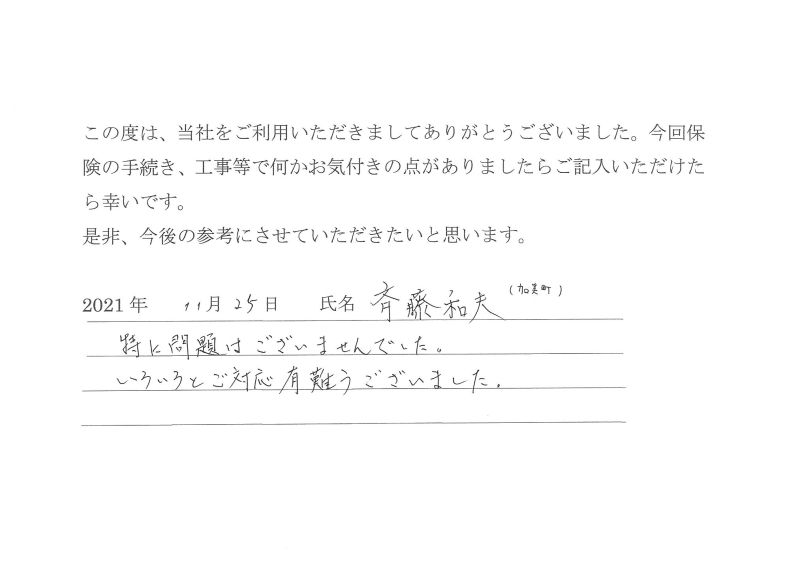 この度は、当社をご利用いただきましてありがとうございました。今回保
険の手続き、工事等で何かお気付きの点がありましたらご記入いただけた
ら幸いです。
是非、今後の参考にさせていただきたいと思います。
2021年 11月 25日 氏名 斉藤和夫 (加美町)
特に問題はございませんでした。
いろいろとご対応有難うございました。